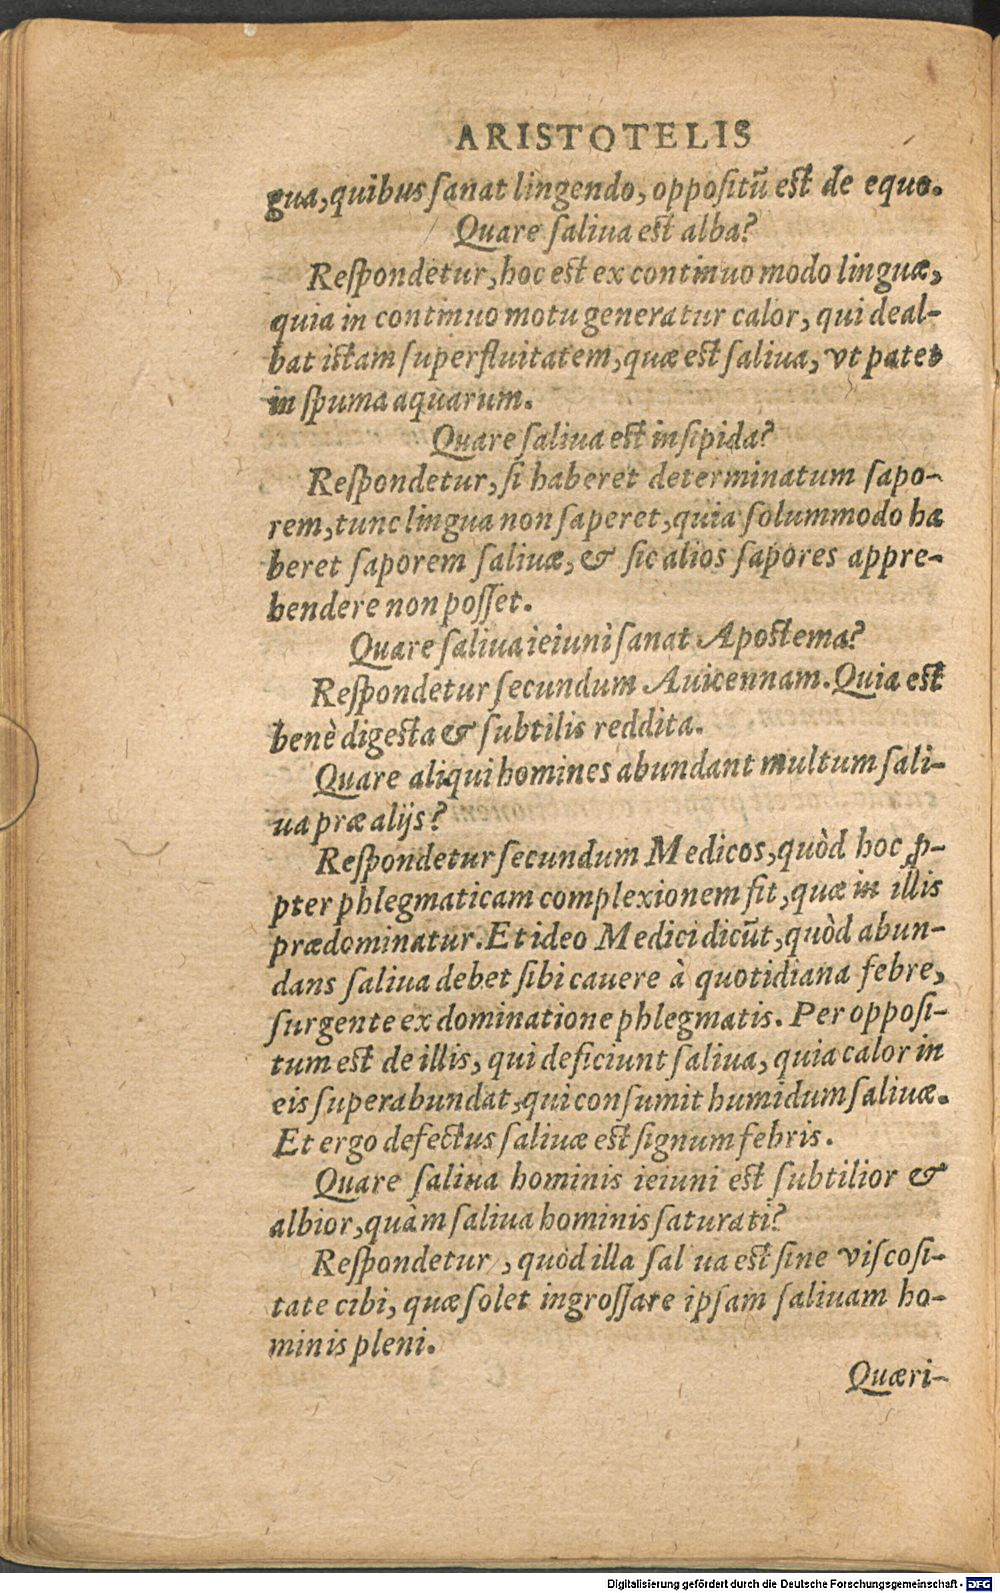 ARISTOTELIS
gua, quibus ſanat lingendo, oppoſitũ est de equo.
Quare ſaliua est alba?
Reſpondetur, hoc est ex continuo modo linguæ,
quia in continuo motu generatur calor, qui deal-
bat istam ſuperfluitatem, quæ est ſaliua, vt patet
in ſpuma aquarum.
Quare ſaliua est inſipida?
Reſpondetur, ſi haberet determinatum ſapo-
rem, tunc lingua non ſaperet, quia ſolummodo ha
beret ſaporem ſaliuæ, & ſic alios ſapores appre-
hendere non poſſet.
Quare ſaliua ieiuni ſanat Apostema?
Reſpondetur ſecundum Auicennam. Quia est
benè digesta & ſubtilis reddita.
Quare aliqui homines abundant multum ſali-
ua præ alijs?
Reſpondetur ſecundum Medicos, quòd hoc ꝓ-
pter phlegmaticam complexionem fit, quæ in illis
prædominatur. Et ideo Medici dicũt, quòd abun-
dans ſaliua debet ſibi cauere à quotidiana febre,
ſurgente ex dominatione phlegmatis. Per oppoſi-
tum est de illis, qui deficiunt ſaliua, quia calor in
eis ſuperabundat, qui conſumit humidum ſaliuæ.
Et ergo defectus ſaliuæ est ſignum febris.
Quare ſaliua hominis ieiuni est ſubtilior &
albior, quàm ſaliua hominis ſaturati?
Reſpondetur, quòd illa ſal ua est ſine viſcoſi-
tate cibi, quæ ſolet ingroſſare ipſam ſaliuam ho-
minis pleni.
Quæri-
Digitalisierung gefördert durch die Deutsche Forschungsgemeinschaft - DFG